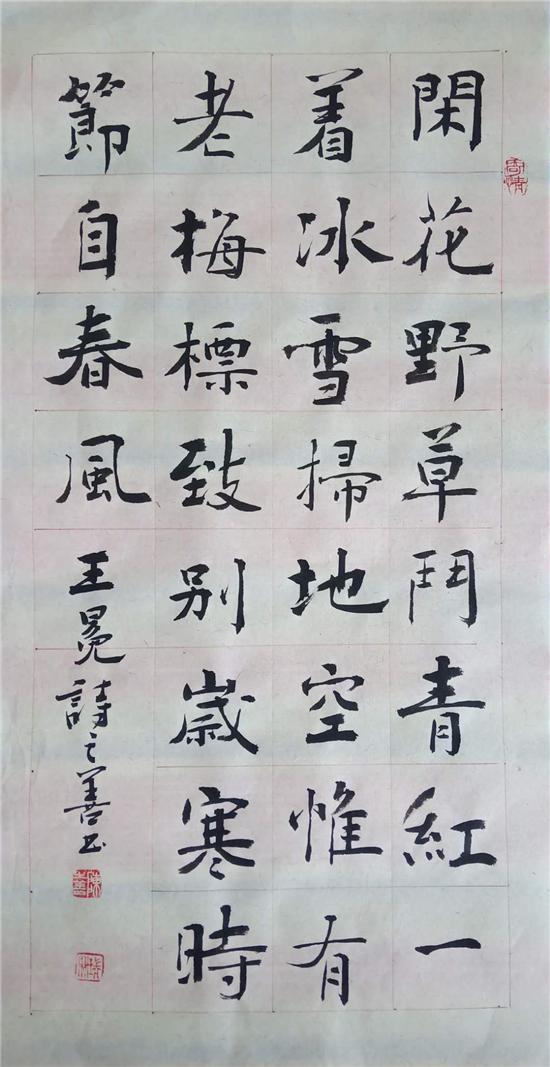 閑花野草鬥青紅一
着冰雪掃地空惟有
老梅標致别歲寒時
節自春風
王冕詩之善书